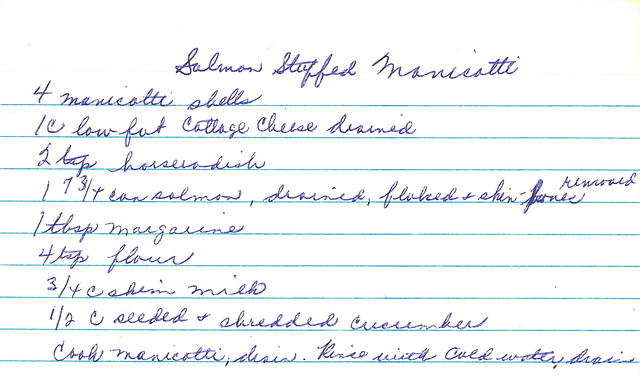 Salmon Stuffed Manicotti
4 manicotti shells
1 C low fat Cottage Cheese drained
2 tsp horseradish
1 7 3/4 can salmon, drained, flaked + skin-bones removed
1 tbsp margarine
4 tsp flour
3/4 C skim milk
1/2 C seeded + shredded cucumber
Cook manicotti, drain. Rince with cold water, drain